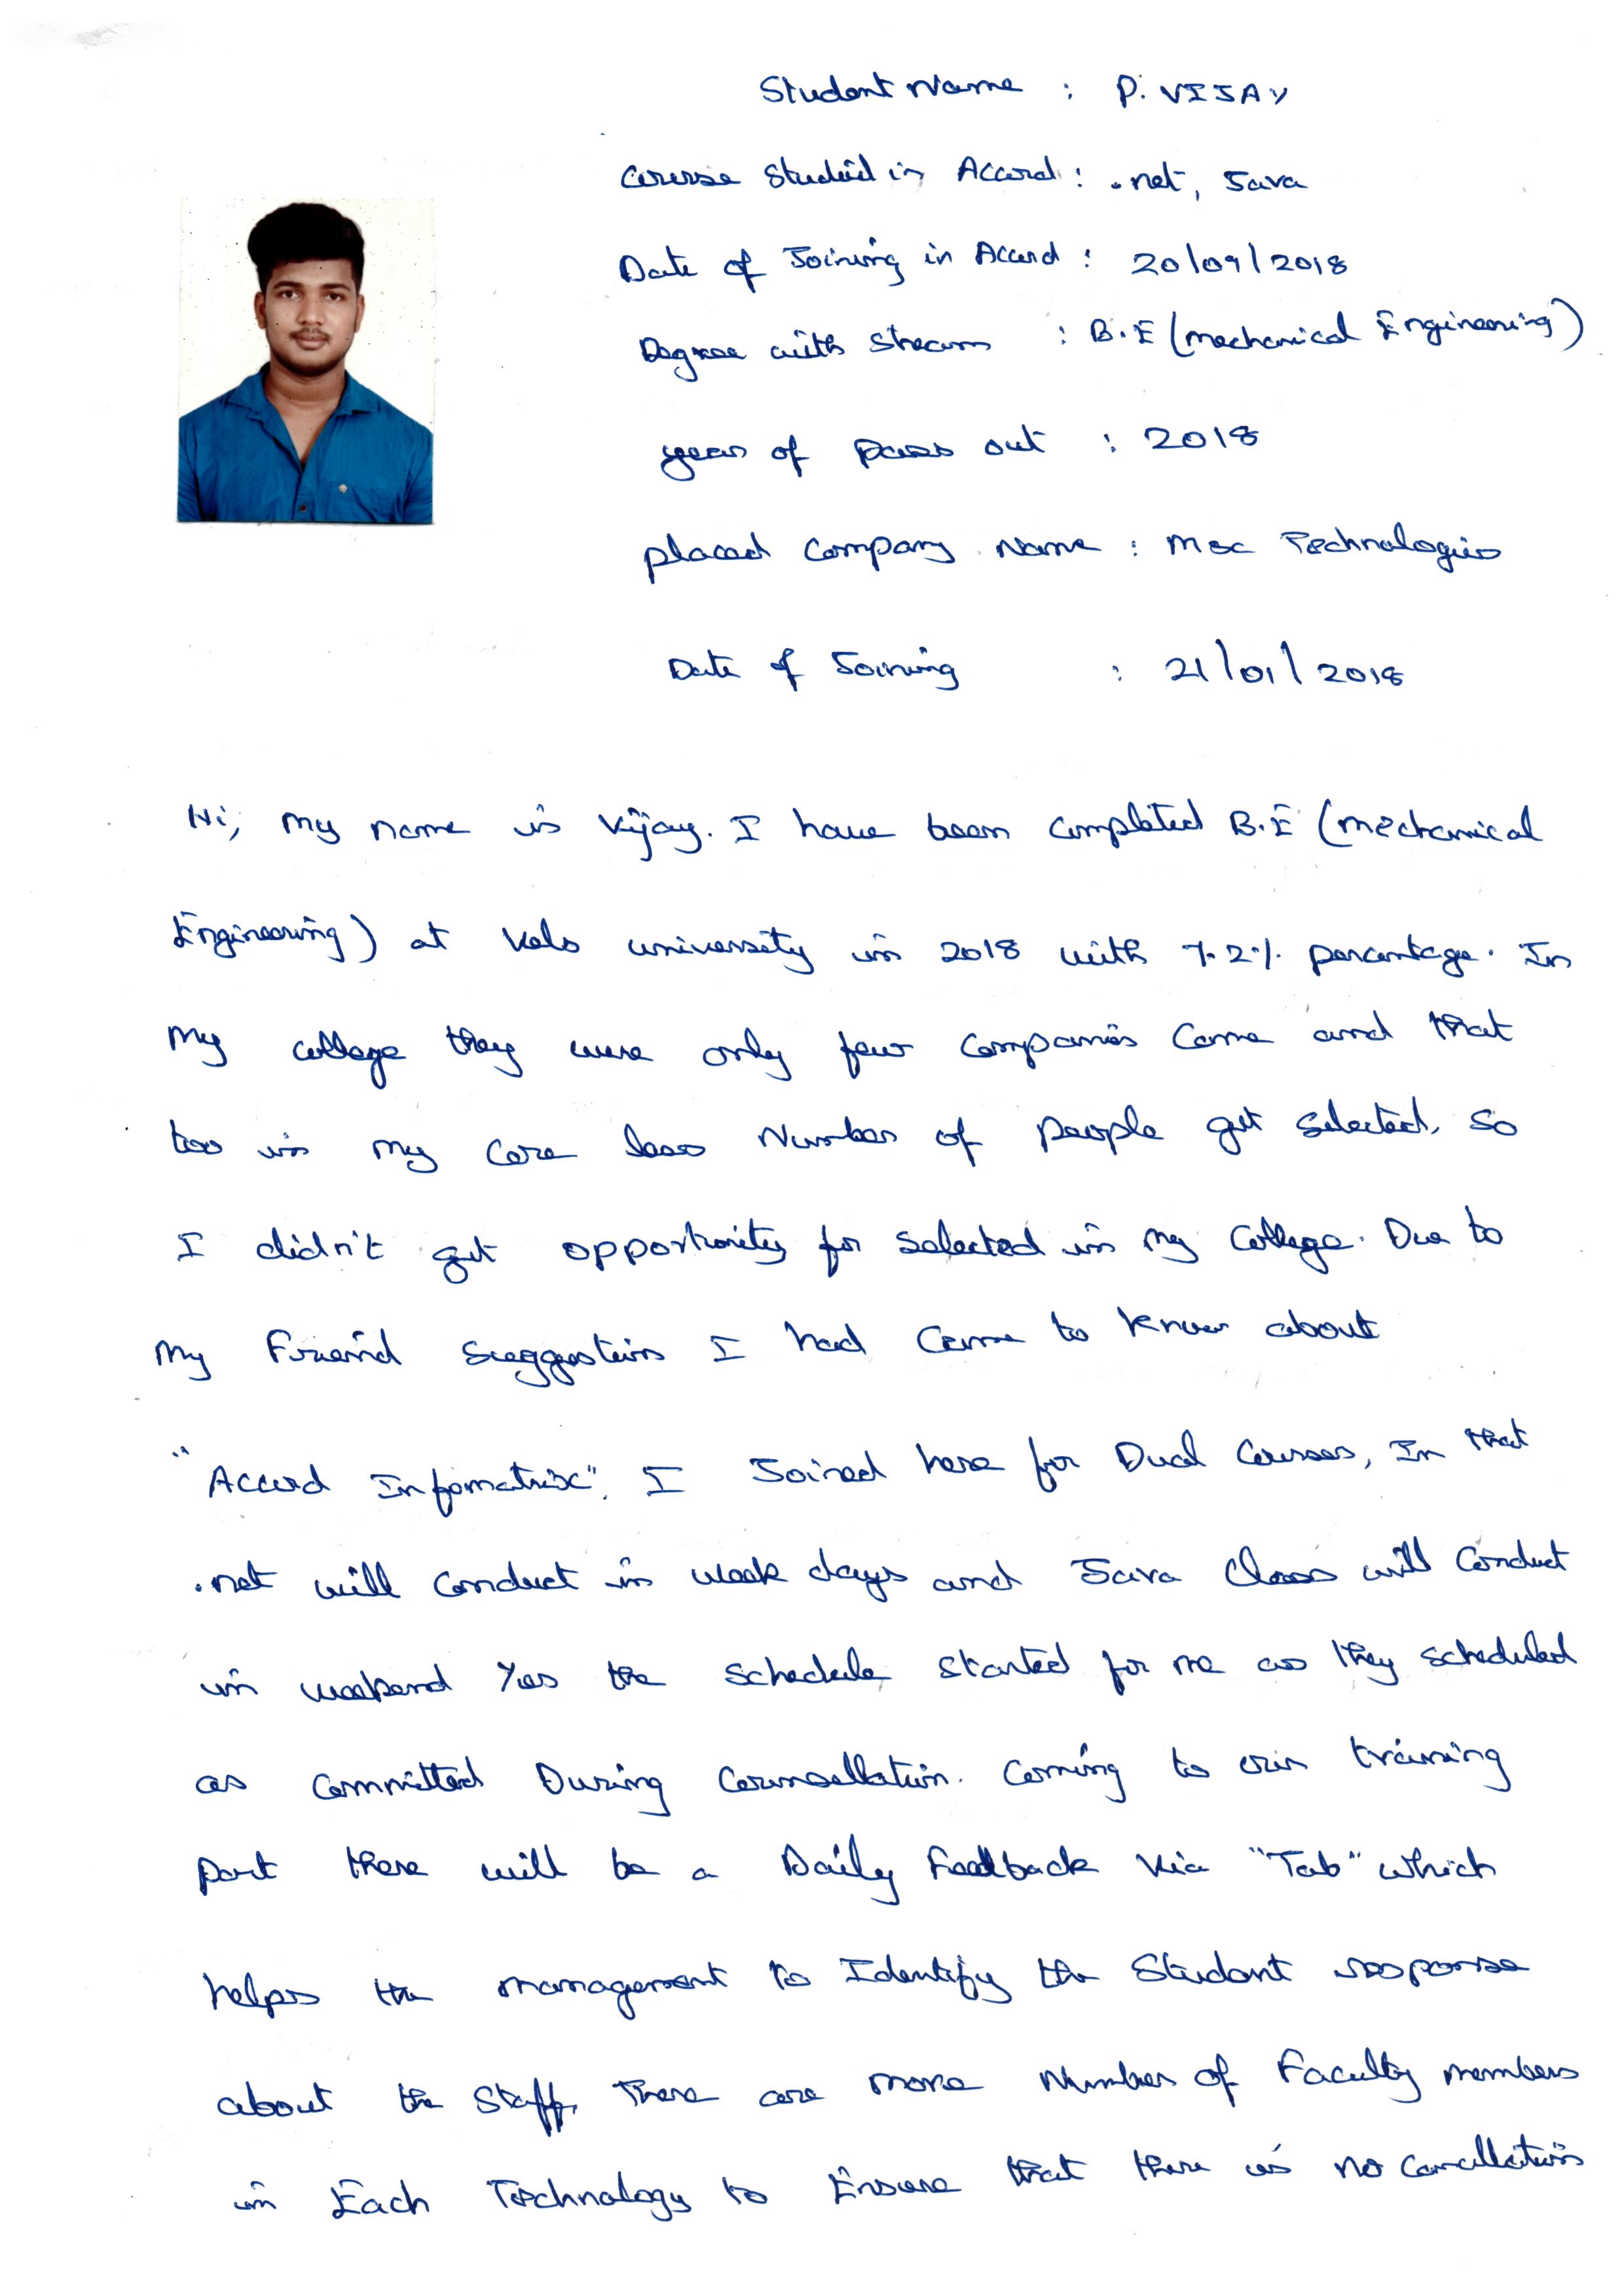 Student Name : P. VIJAY
Course Studied in Accord : .net, Java
Date of Joining in Accord : 20/09/2018
Degree with Stream : B.E (Mechanical Engineering)
year of pass out : 2018
placed Company Name : Msc Technologies
Date of Joining : 21/01/2018
Hi, my name is Vijay. I have been completed B.E (Mechanical
Engineering) at Vels university in 2018 with 7.2% percentage. In
my college they were only few companies came and that
too in my core less Number of people get selected, so
I didn't get opportunity for selected in my college. Due to
my Friend suggestion I had came to know about
"Accord Infomatrix". I Joined here for Dual Courses, In that
.net will conduct in week days and Java Class will conduct
in weekend Yes the schedule started for me as they scheduled
as committed During Counsellation. Coming to our training
part there will be a Daily Feedback via "Tab" which
helps the management to Identify the Student response
about the Staff, There are more Number of Faculty members
in Each Technology to Ensure that there is no Cancellation